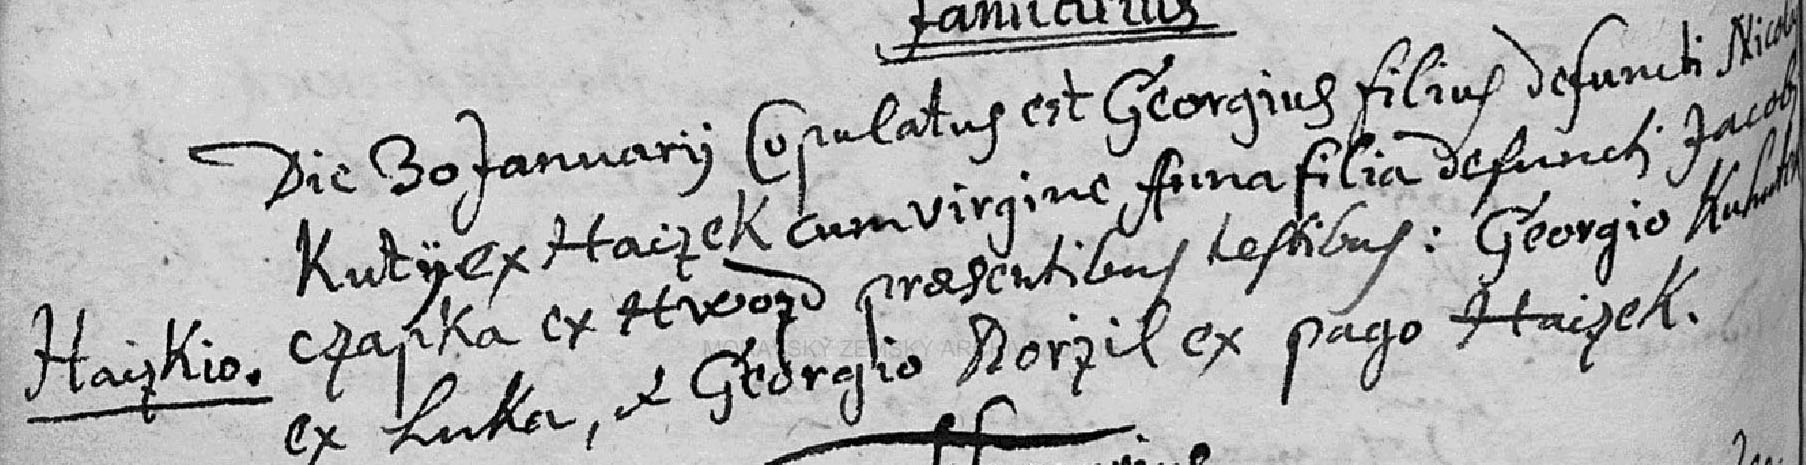 Januarius
Die 30 Januarij Copulatus est Georgius filius defuncti Nicolai
Kutij ex Haizek cum virgine Anna filia defuncti Jacobi
czapka ex Hwozd præsentibus testibus: Georgio
Haizkio.
ex Luka, & Georgio Norzil ex pago Haizek.